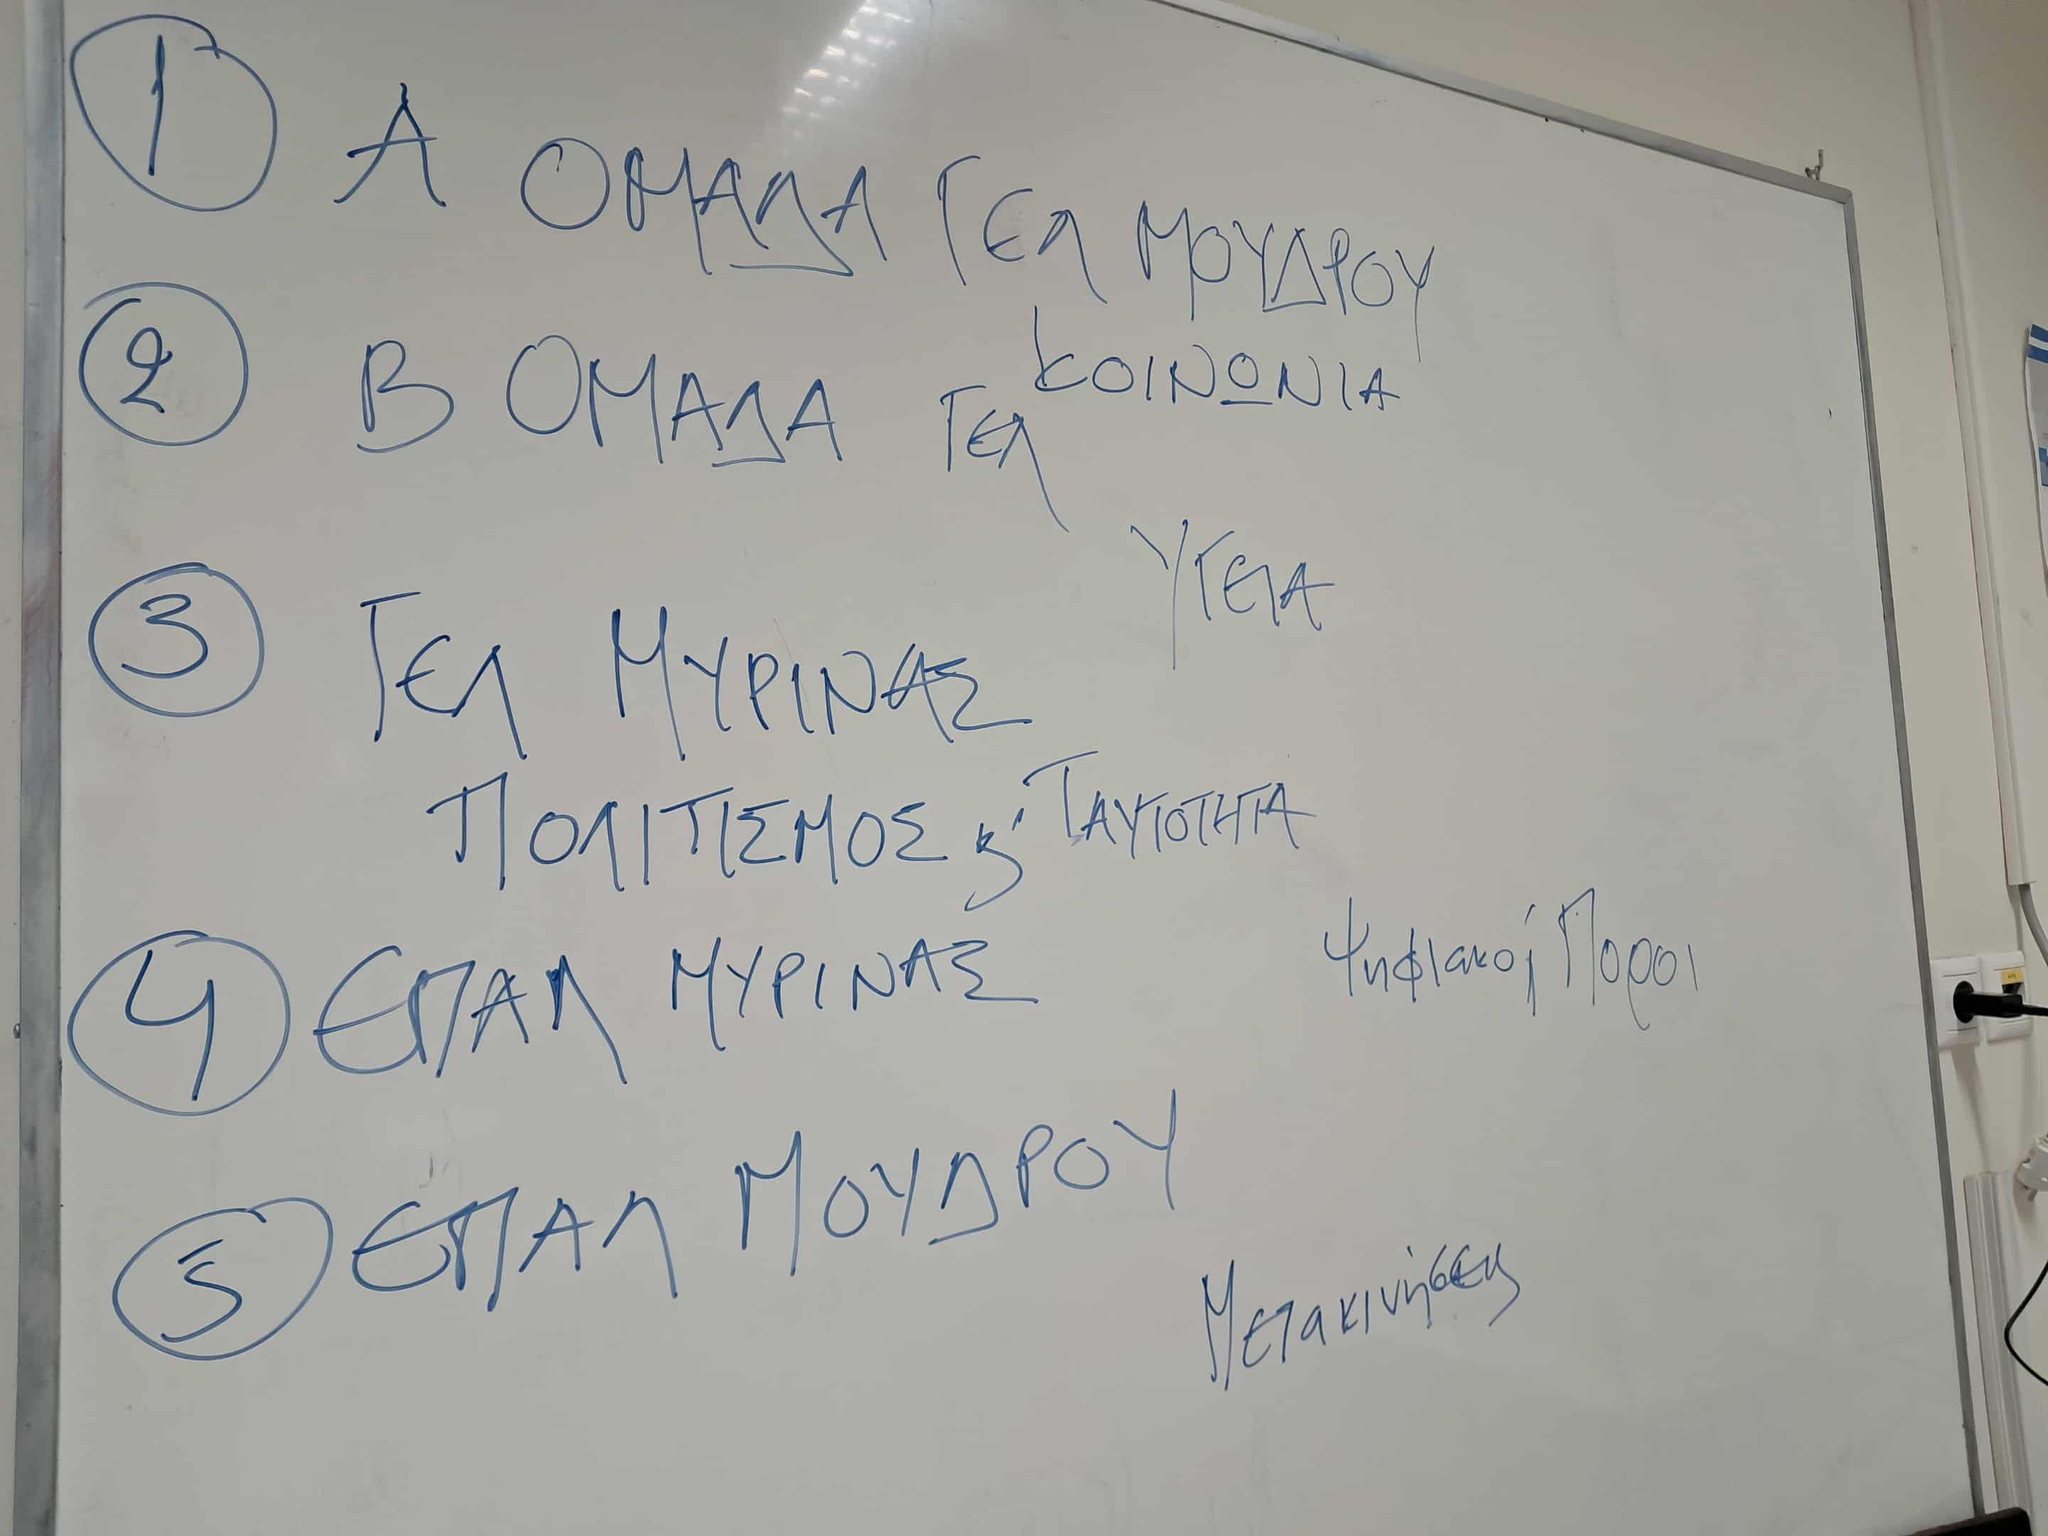 1 Α ΟΜΑΔΑ ΓΕΛ ΜΟΥΔΡΟΥ
ΚΟΙΝΩΝΙΑ
2 Β ΟΜΑΔΑ ΓΕΛ
ΥΓΕΙΑ
3 ΓΕΛ ΜΥΡΙΝΑΣ
ΠΟΛΙΤΙΣΜΟΣ κ' ΤΑΥΤΟΤΗΤΑ
4 ΕΠΑΛ ΜΥΡΙΝΑΣ
Ψηφιακοί Πόροι
5 ΕΠΑΛ ΜΟΥΔΡΟΥ
Μετακινήσεις